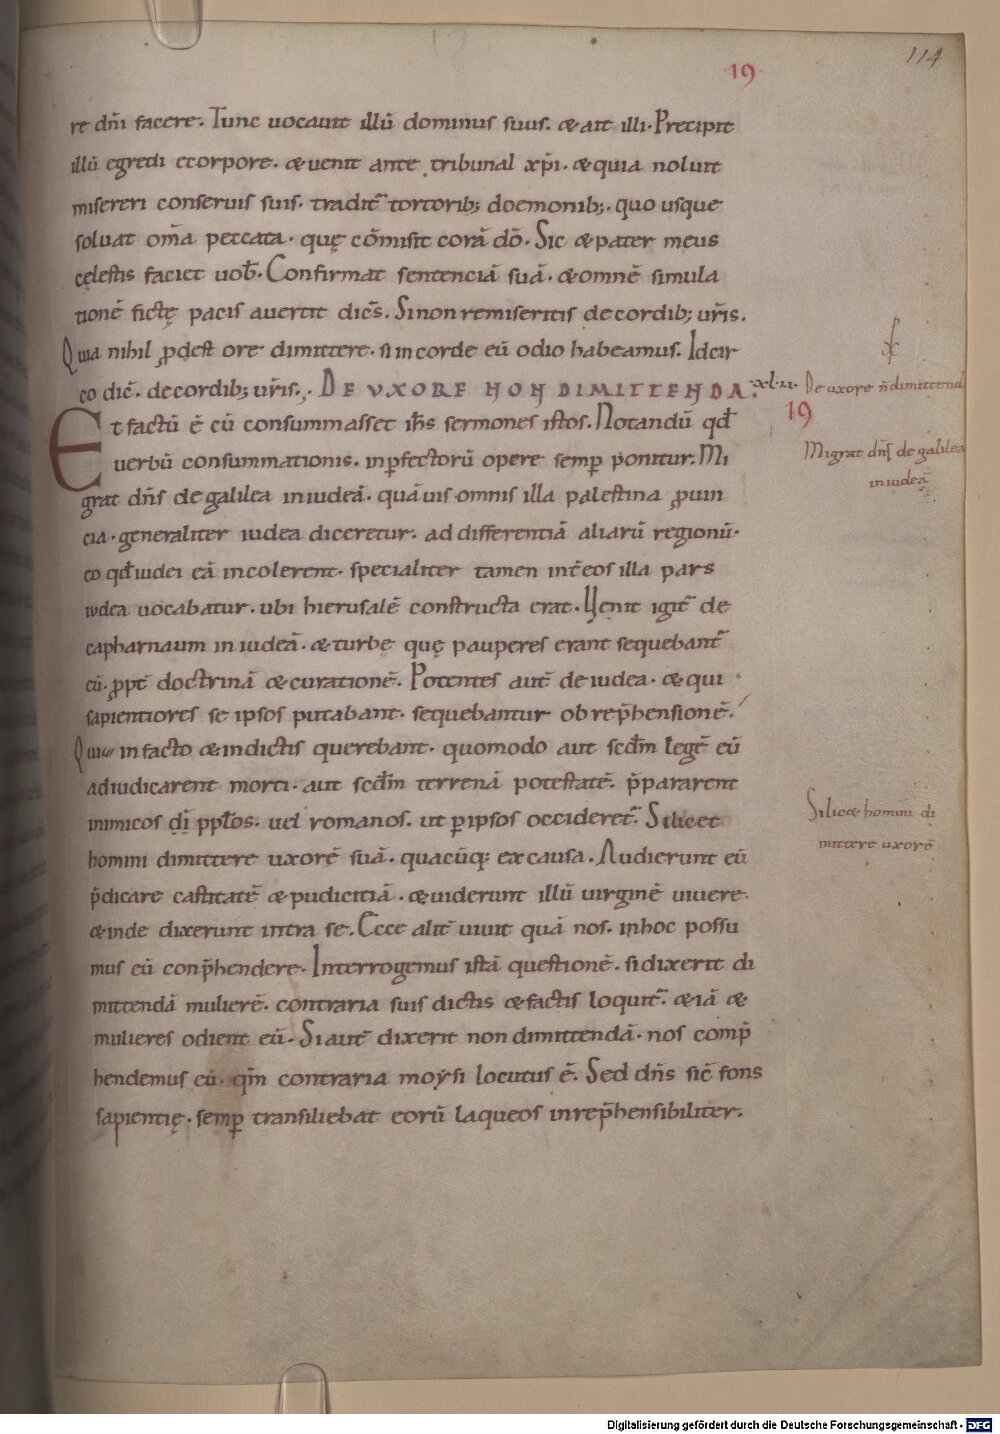 114
19
re dn̄i facere. Tunc uocauit illū dominus suus. & ait illi. Precipit
illū egredi ecorpore. & uenit ante tribunal xp̄i. & quia noluit
misereri conseruis suis. tradit̄ tortorib; doemonib;. quo usque
soluat om̄a peccata. quę cōmisit corā dō. Sic & pater meus
cęlestis faciet uob̄. Confirmat sentenciā suā. & omnē simula
tionē fictę pacis auertit dicēs. Sinon remiseritis decordib; ur̄is.
Quia nihil ꝓdest ore dimittere. si incorde eū odio habeamus. Idcir
co dic̄. decordib; ur̄is. DE VXORE NON DIMITTENDA.
xl·ii. De uxore n̄ dimittend
19
Et factū ē cū consummasset ih̄s sermones istos. Notandū qd̄
uerbū consummationis. inꝑfectorū opere semꝑ ponitur. Mi
Migrat dn̄s de galilea
iniudeā
grat dn̄s de galilea iniudeā. quāuis omnis illa palestina ꝓuin
cia. generaliter iudea diceretur. ad differentiā aliarū regionū.
eo qd̄ iudei eā incolerent. specialiter tamen int̄ eos illa pars
iudea uocabatur. ubi hierusalē constructa erat. Uenit igit̄ de
capharnaum in iudeā. & turbę quę pauperes erant sequebant̄
eū. ꝓpt̄ doctrinā & curationē. Potentes aut̄ de iudea. & qui
sapientiores se ipsos putabant. sequebantur ob rep̄hensionē.
Qui in facto & indictis querebant. quomodo aut scd̄m legē eū
adiudicarent morti. aut scd̄m terrenā potestatē. p̄pararent
inimicos di ppl̄os. uel romanos. ut ꝑ ipsos occideret̄. Si licet
Si licæ homini di
mittere uxorē
homini dimittere uxorē suā. quacūq; ex causa. Audierunt eū
p̄dicare castitatē & pudicitiā. & uiderunt illū uirginē uiuere.
& inde dixerunt intra se. Ecce alit̄ uiuit quā nos. inhoc possu
mus eū conp̄hendere. Interrogemus istā questionē. si dixerit di
mittendā mulierē. contraria suis dictis & factis loquit̄. & iā &
mulieres odient eū. Si aut̄ dixerit non dimittendā. nos comp̄
hendemus eū. qm̄ contraria moẏsi locutus ē. Sed dn̄s sic̄ fons
sapientię. semꝑ transiliebat eorū laqueos inrep̄hensibiliter.
Digitalisierung gefördert durch die Deutsche Forschungsgemeinschaft - DFG